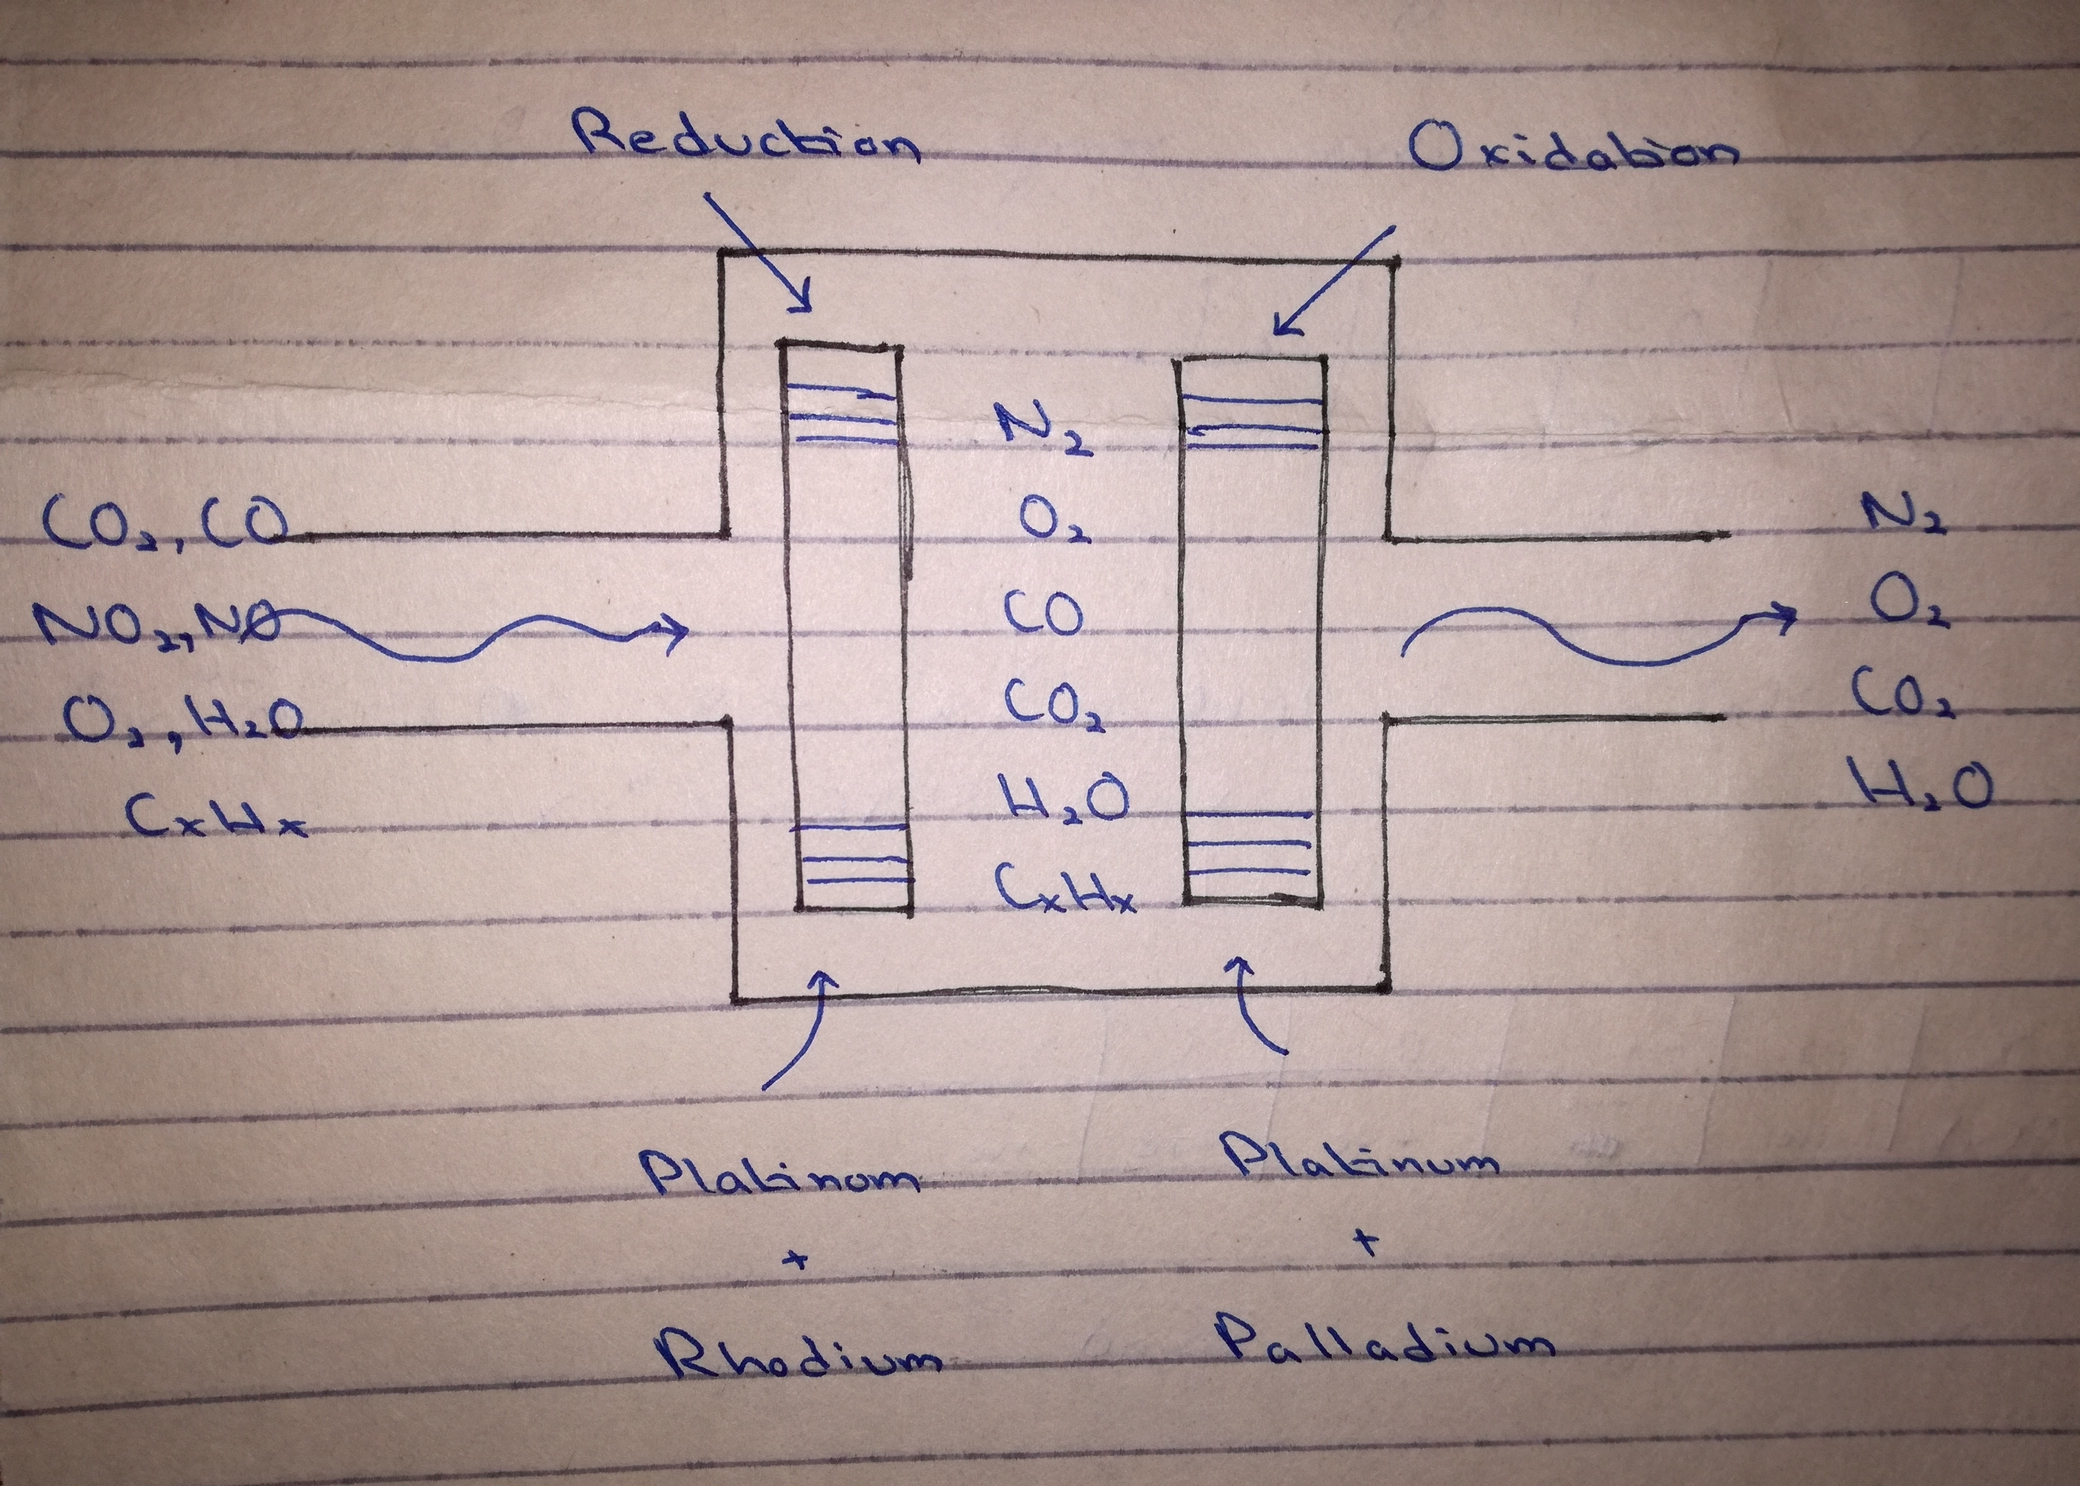 Reduction
Oxidation
CO₂, CO
NO₂, NO
O₂, H₂O
CxHx
N₂
O₂
CO
CO₂
H₂O
CxHx
N₂
O₂
CO₂
H₂O
Platinum
+
Rhodium
Platinum
+
Palladium